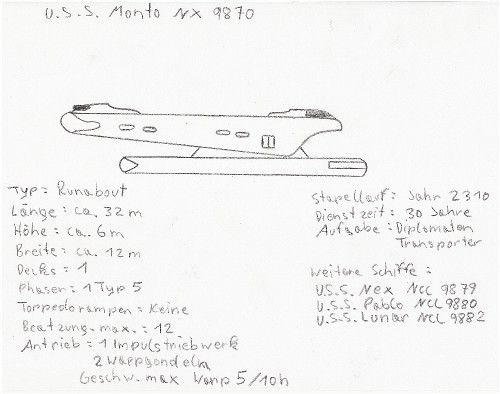 U.S.S. Monto NX 9870
Typ: Runabout
Länge: ca. 32 m
Höhe: ca. 6 m
Breite: ca. 12 m
Decks: 1
Phaser: 1 Typ 5
Torpedorampen: Keine
Beatzung-max.: 12
Antrieb: 1 Impulstriebwerk
2 Warpgondeln
Geschw. max Warp 5/10h
Stapellauf: Jahr 2310
Dienstzeit: 30 Jahre
Aufgabe: Diplomaten
Transporter
weitere Schiffe:
U.S.S. Nex NCC 9879
U.S.S. Pablo NCC 9880
U.S.S. Lunar NCC 9882